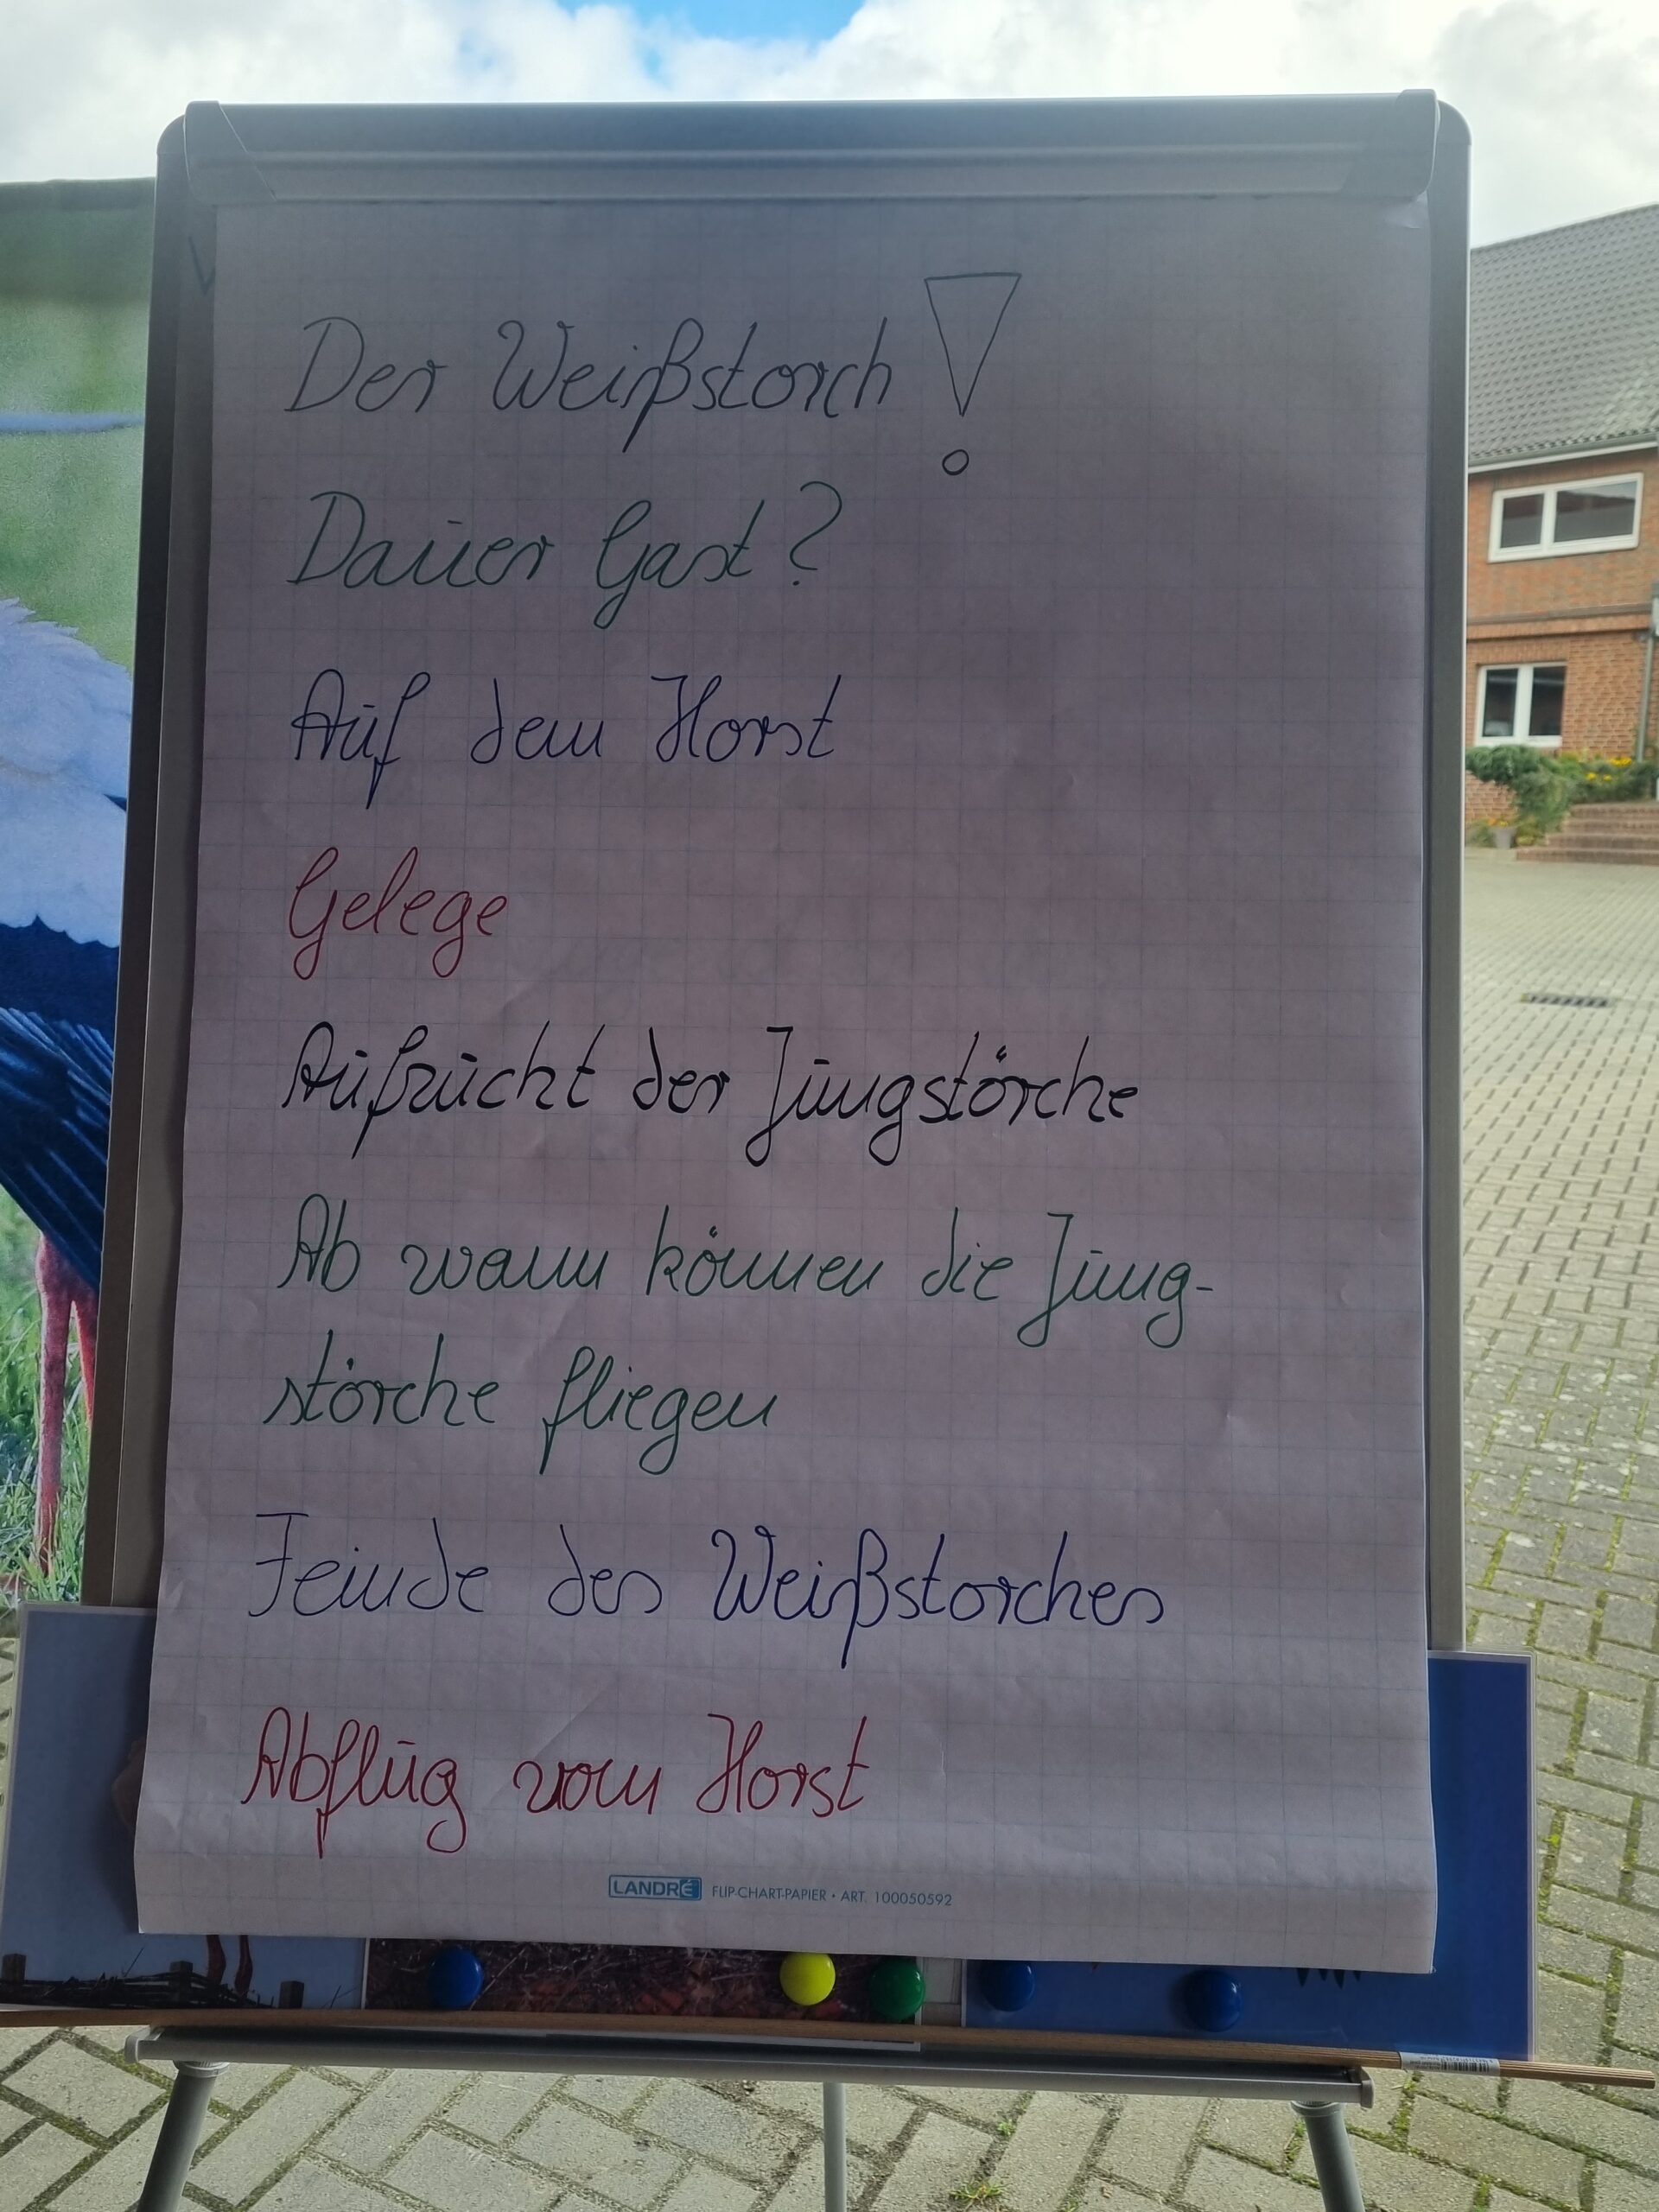 Der Weißstorch !
Dauer Gast ?
Auf dem Horst
Gelege
Aufzucht der Jungstörche
Ab wann können die Jung-
störche fliegen
Feinde des Weißstorches
Abflug vom Horst
LANDRÉ FLIP-CHART-PAPIER • ART. 100050592